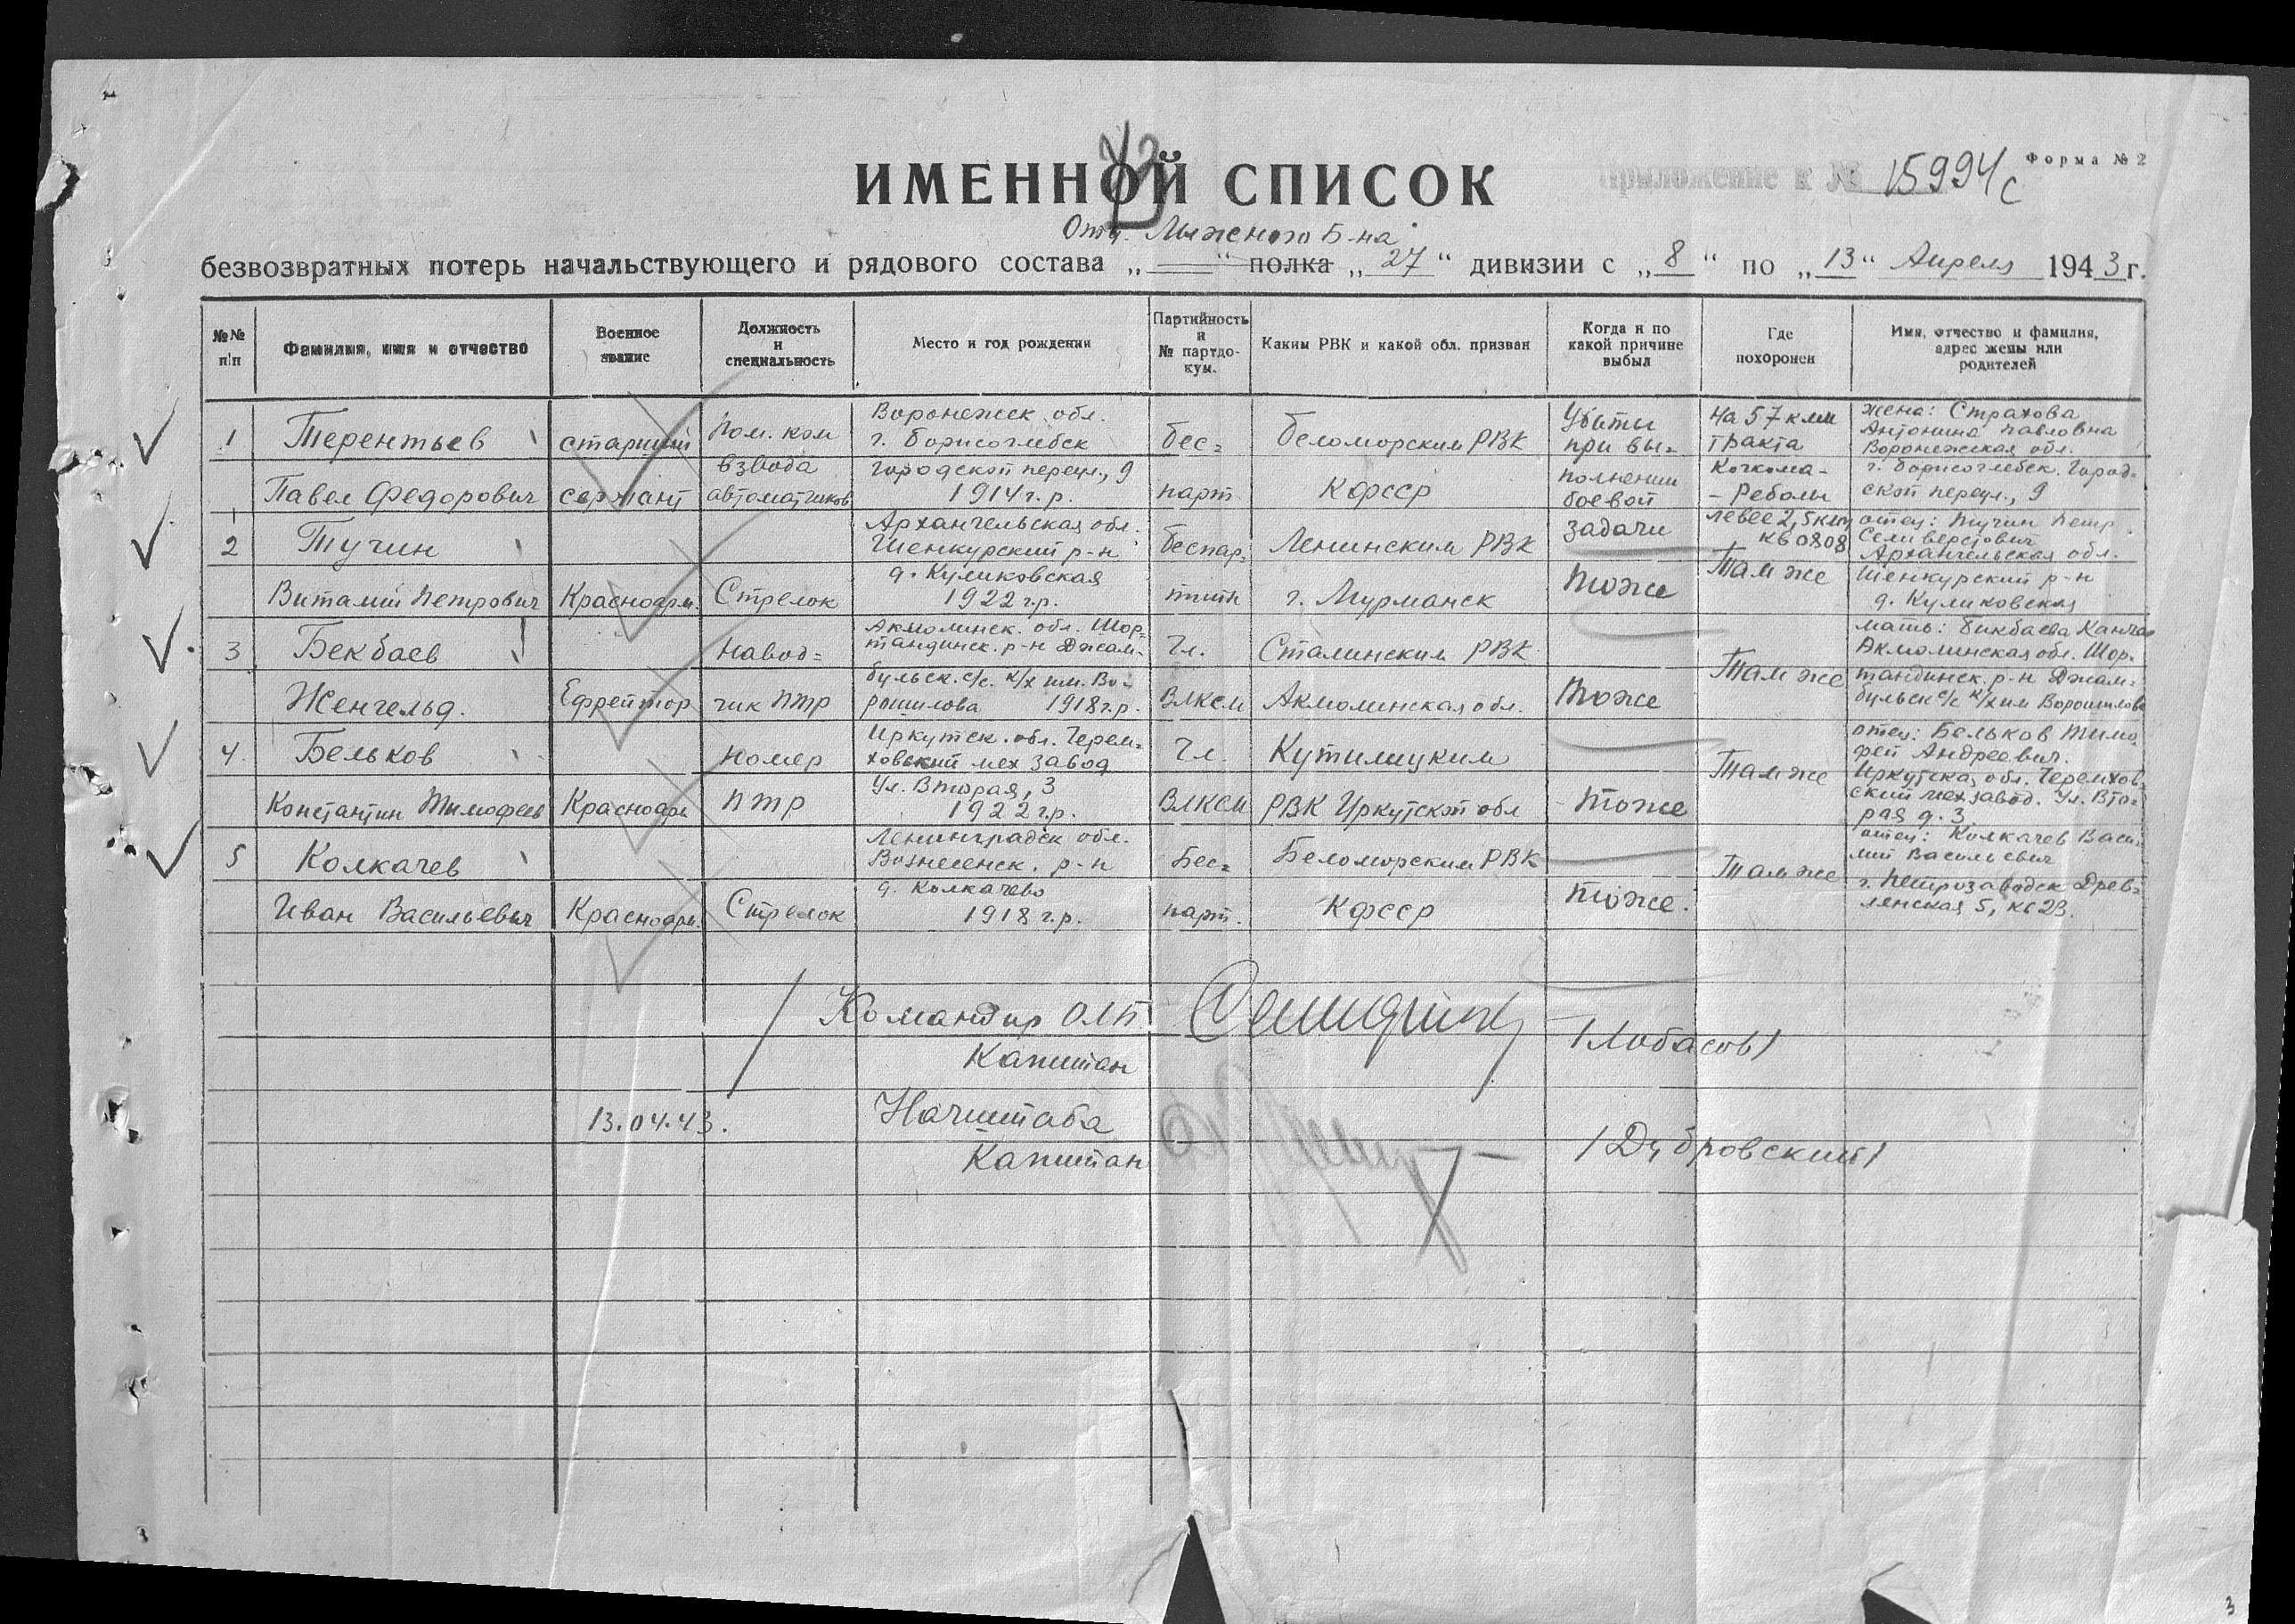 Форма № 2
Приложение к № 15994с
ИМЕННОЙ СПИСОК
Отд. Лыжного Б-на
безвозвратных потерь начальствующего и рядового состава „—“ полка „27“ дивизии с „8“ по „13“ Апреля 1943 г.
№№ п/п
Фамилия, имя и отчество
Военное звание
Должность и специальность
Место и год рождения
Партийность и № партдокум.
Каким РВК и какой обл. призван
Когда и по какой причине выбыл
Где похоронен
Имя, отчество и фамилия, адрес жены или родителей
1
Терентьев
Павел Федорович
старший
сержант
Пом. ком
взвода
автоматчиков
Воронежск. обл.
г. Борисоглебск
Городской переул., 9
1914 г. р.
бес=
парт
Беломорским РВК
КФССР
Убиты
при вы=
полнении
боевой
задачи
на 57 клм
тракта
Кочкома-
- Реболы
левее 2,5 клм
кв 0808
жена: Страхова
Антонина Павловна
Воронежская обл.
г. Борисоглебск. Город-
ской переул., 9
2
Тучин
Виталий Петрович
Красноарм.
Стрелок
Архангельская обл.
Шенкурский р-н
д. Куликовская
1922 г.р.
беспар=
тийн
Ленинским РВК
г. Мурманск
тоже
Там же
отец: Тучин Петр
Селиверстович
Архангельская обл.
Шенкурский р-н
д. Куликовская
3
Бекбаев
Женгельд.
Ефрейтор
Навод=
чик ПТР
Акмолинск. обл. Шор=
тандинск. р-н Джам-
бульск. с/с. к/х им. Во-
рошилова 1918 г.р.
Чл.
ВЛКСМ
Сталинским РВК
Акмолинская обл.
тоже
Там же
мать: Бикбаева
Акмолинская обл. Шор-
тандинск. р-н Джам=
бульск с/с к/х им Ворошилова
4.
Бельков
Константин Тимофеев
Красноарм
номер
ПТР
Иркутск. обл. Черем=
ховский мех завод
Ул. Вторая, 3
1922 г.р.
Чл.
ВЛКСМ
Кутиликим
РВК Иркутской обл
- тоже
Там же
отец: Бельков Тимо
фей Андреевич.
Иркутска, обл. Черемхов-
ский мех завод. Ул. Вто=
рая д. 3
5
Колкачев
Иван Васильевич
Красноарм.
Стрелок
Ленинградск обл.
Вознесенск. р-н
д. Колкачево
1918 г.р.
Бес=
парт.
Беломорским РВК
КФССР
тоже.
Там же
отец: Колкачев Васи-
лий Васильевич
г. Петрозаводск Древ=
лянская 5, кв 23.
Командир ОЛБ
Капитан
/Лобасов/
13.04.43.
Начштаба
Капитан
/Дубровский/
3